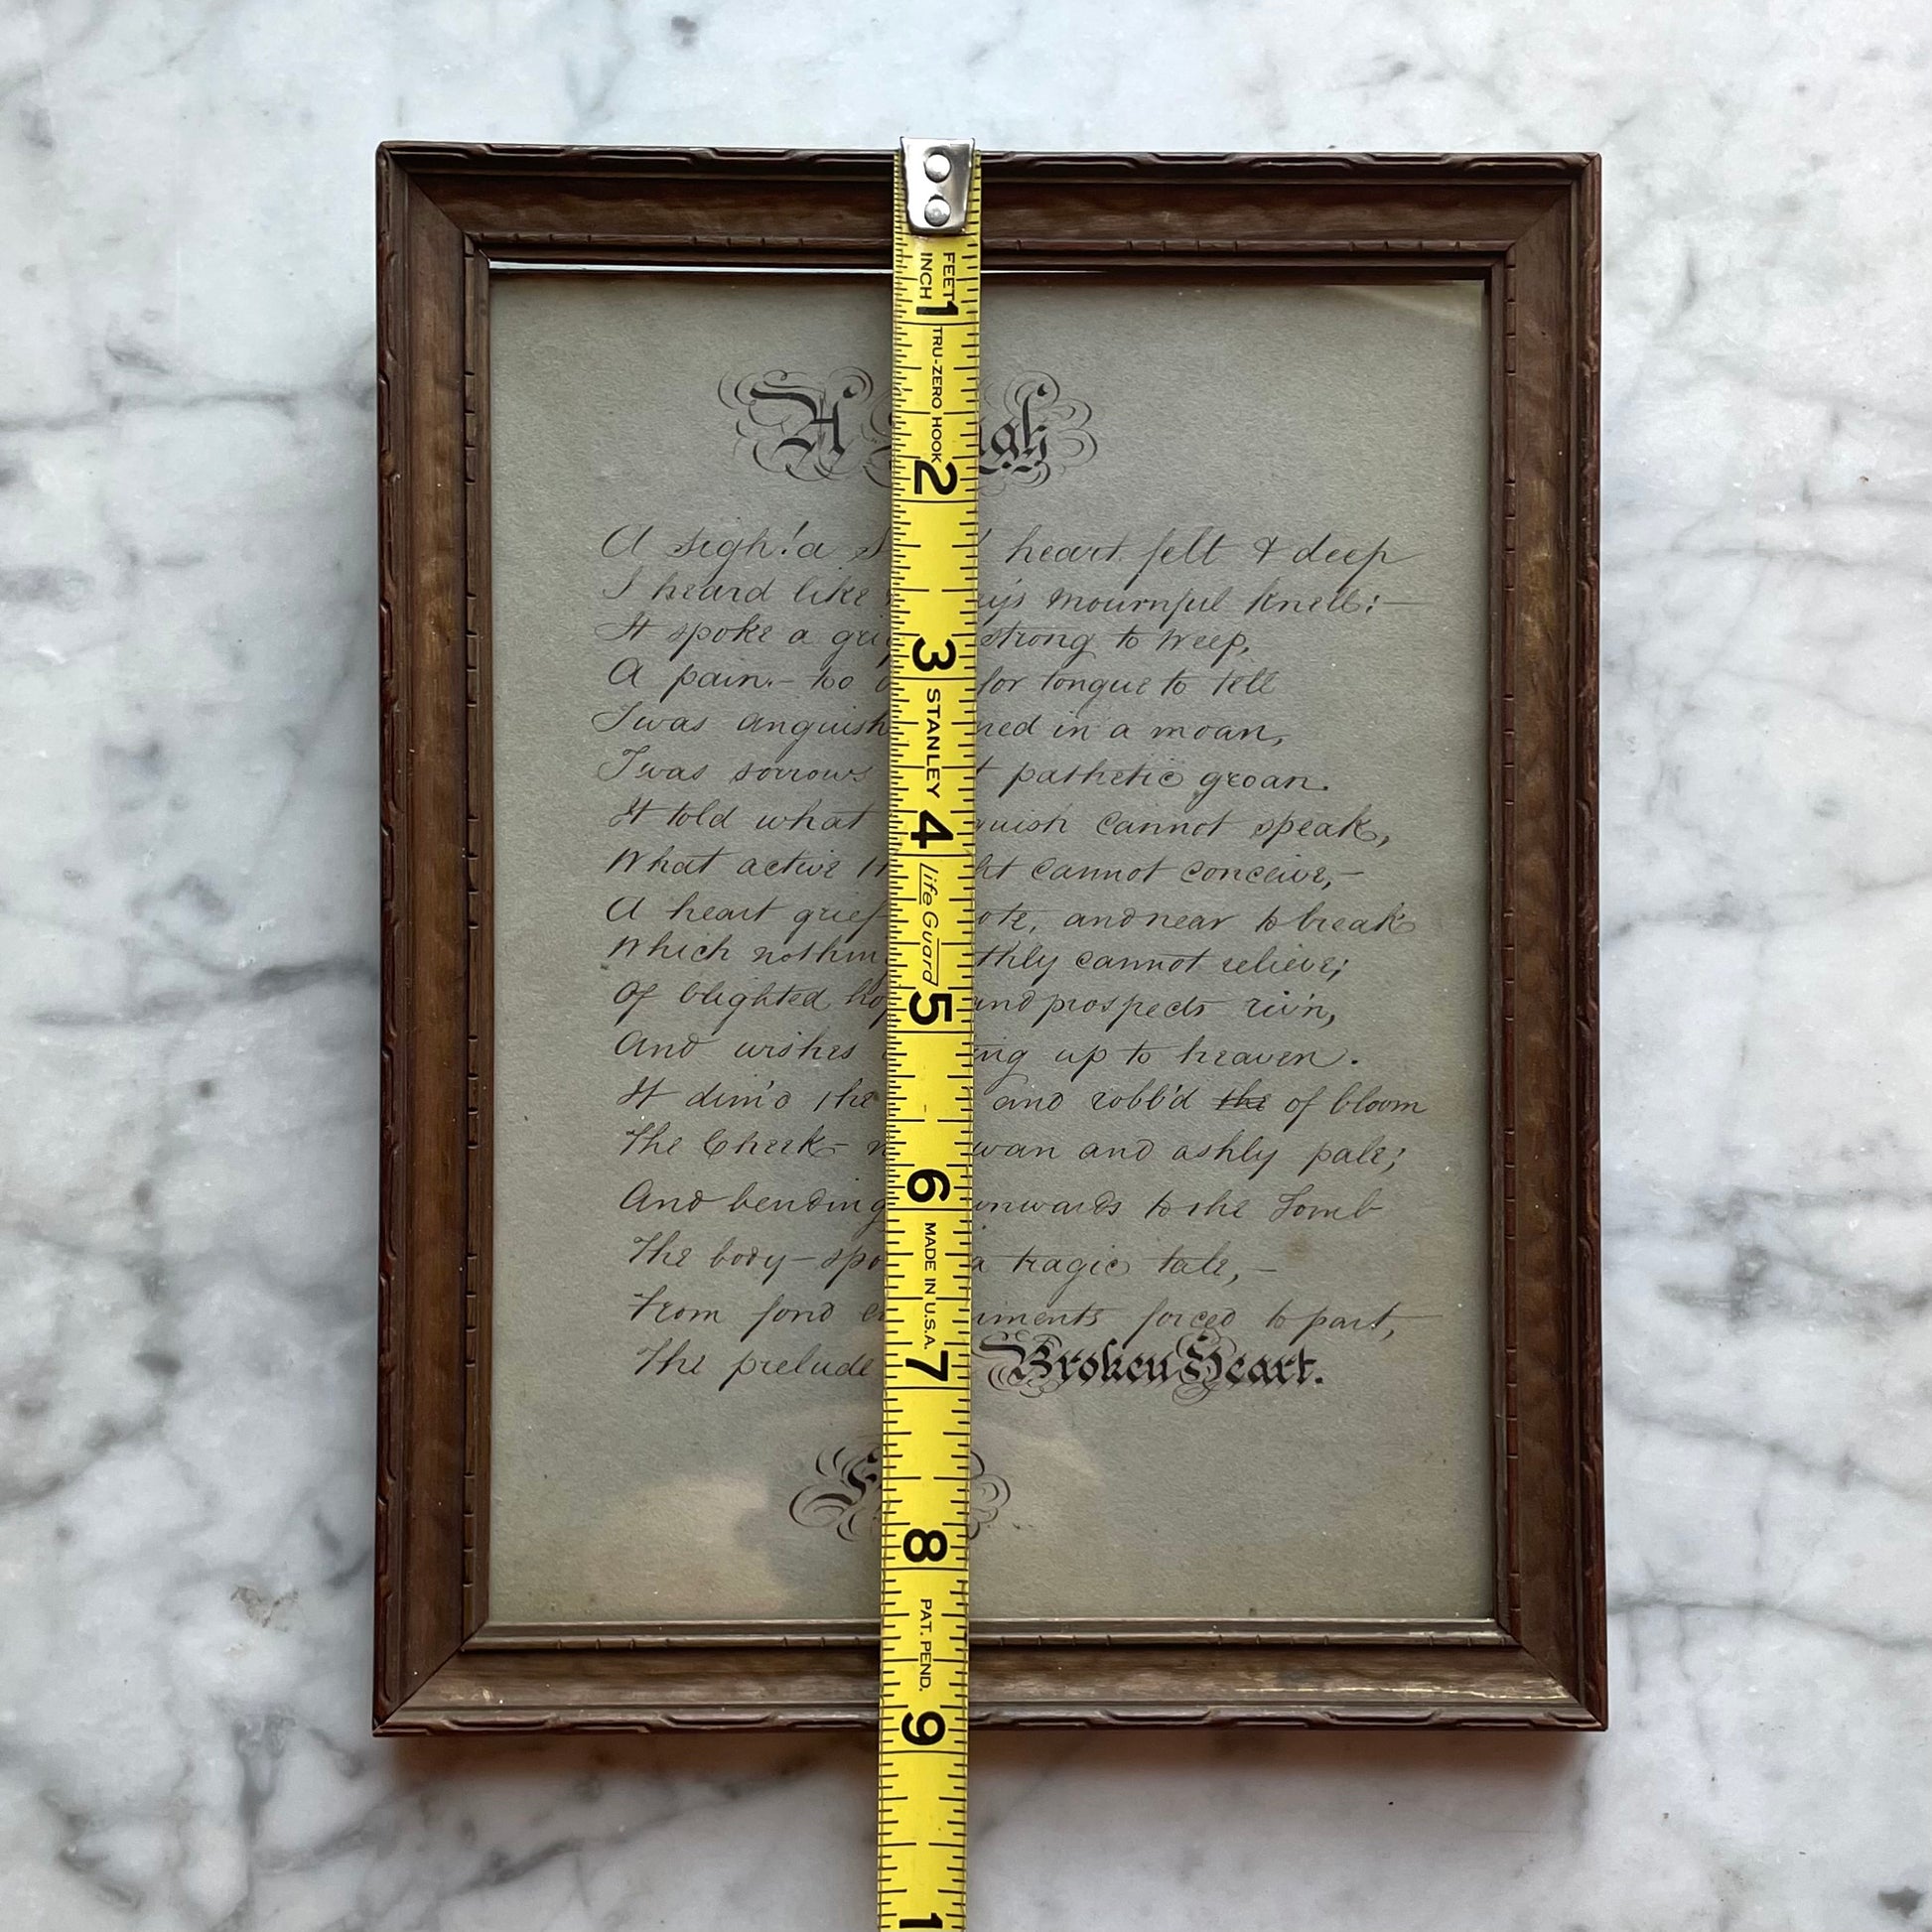 A
A sigh! a heart felt & deep
I heard like mournful knell:—
It spoke a strong to weep,
A pain.— too for tongue to tell
Twas anguish in a moan,
Twas sorrows pathetic groan.
It told what cannot speak,
What active cannot conceive,—
A heart grief and near to break
Which cannot relieve;
Of blighted and prospects riv'n,
And wishes up to heaven.
It dim'd the and robb'd the of bloom
The Cheek— wan and ashly pale;
And bending to the Tomb
The body— a tragic tale,—
From fond forced to part,
The prelude Broken Heart.
FEET
INCH
1
TRU-ZERO HOOK
2
3
STANLEY
4
life Guard
5
6
MADE IN U.S.A.
7
8
PAT. PEND.
9
1